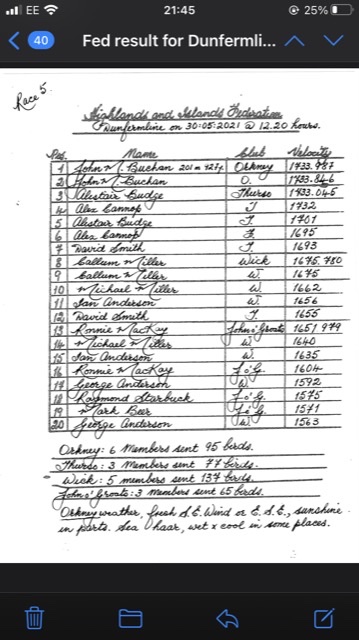 EE 21:45 25%
40 Fed result for Dunfermli...
Race 5.
Highlands and Islands Federation
Dunfermline on 30:05:2021 @ 12.20 hours.
Pos. Name Club Velocity
1 John + J. Buchan 201 m 127y. Orkney 1933.987
2 John + J. Buchan O. 1933.846
3 Alistair Budge Thurso 1933.045
4 Alex Cannop T 1732
5 Alistair Budge T. 1701
6 Alex Cannop T 1695
7 David Smith T. 1693
8 Callum + Miller Wick 1675.780
9 Callum + Miller W. 1675
10 Michael + Miller W. 1662
11 Ian Anderson W. 1656
12 David Smith T. 1655
13 Ronnie + MacKay John o' Groats 1651 979
14 Michael + Miller W. 1640
15 Ian Anderson W. 1635
16 Ronnie + MacKay J o' G. 1604
17 George Anderson W. 1592
18 Raymond Starbuck J o' G. 1575
19 Mark Beer J o' G. 1571
20 George Anderson W. 1563
Orkney: 6 Members sent 95 birds.
Thurso: 3 Members sent 77 birds.
Wick: 5 members sent 137 birds.
John o' Groats: 3 members sent 65 birds.
Orkney weather, fresh S.E. Wind or E.S.E., sunshine
in parts. Sea haar, wet & cool in some places.